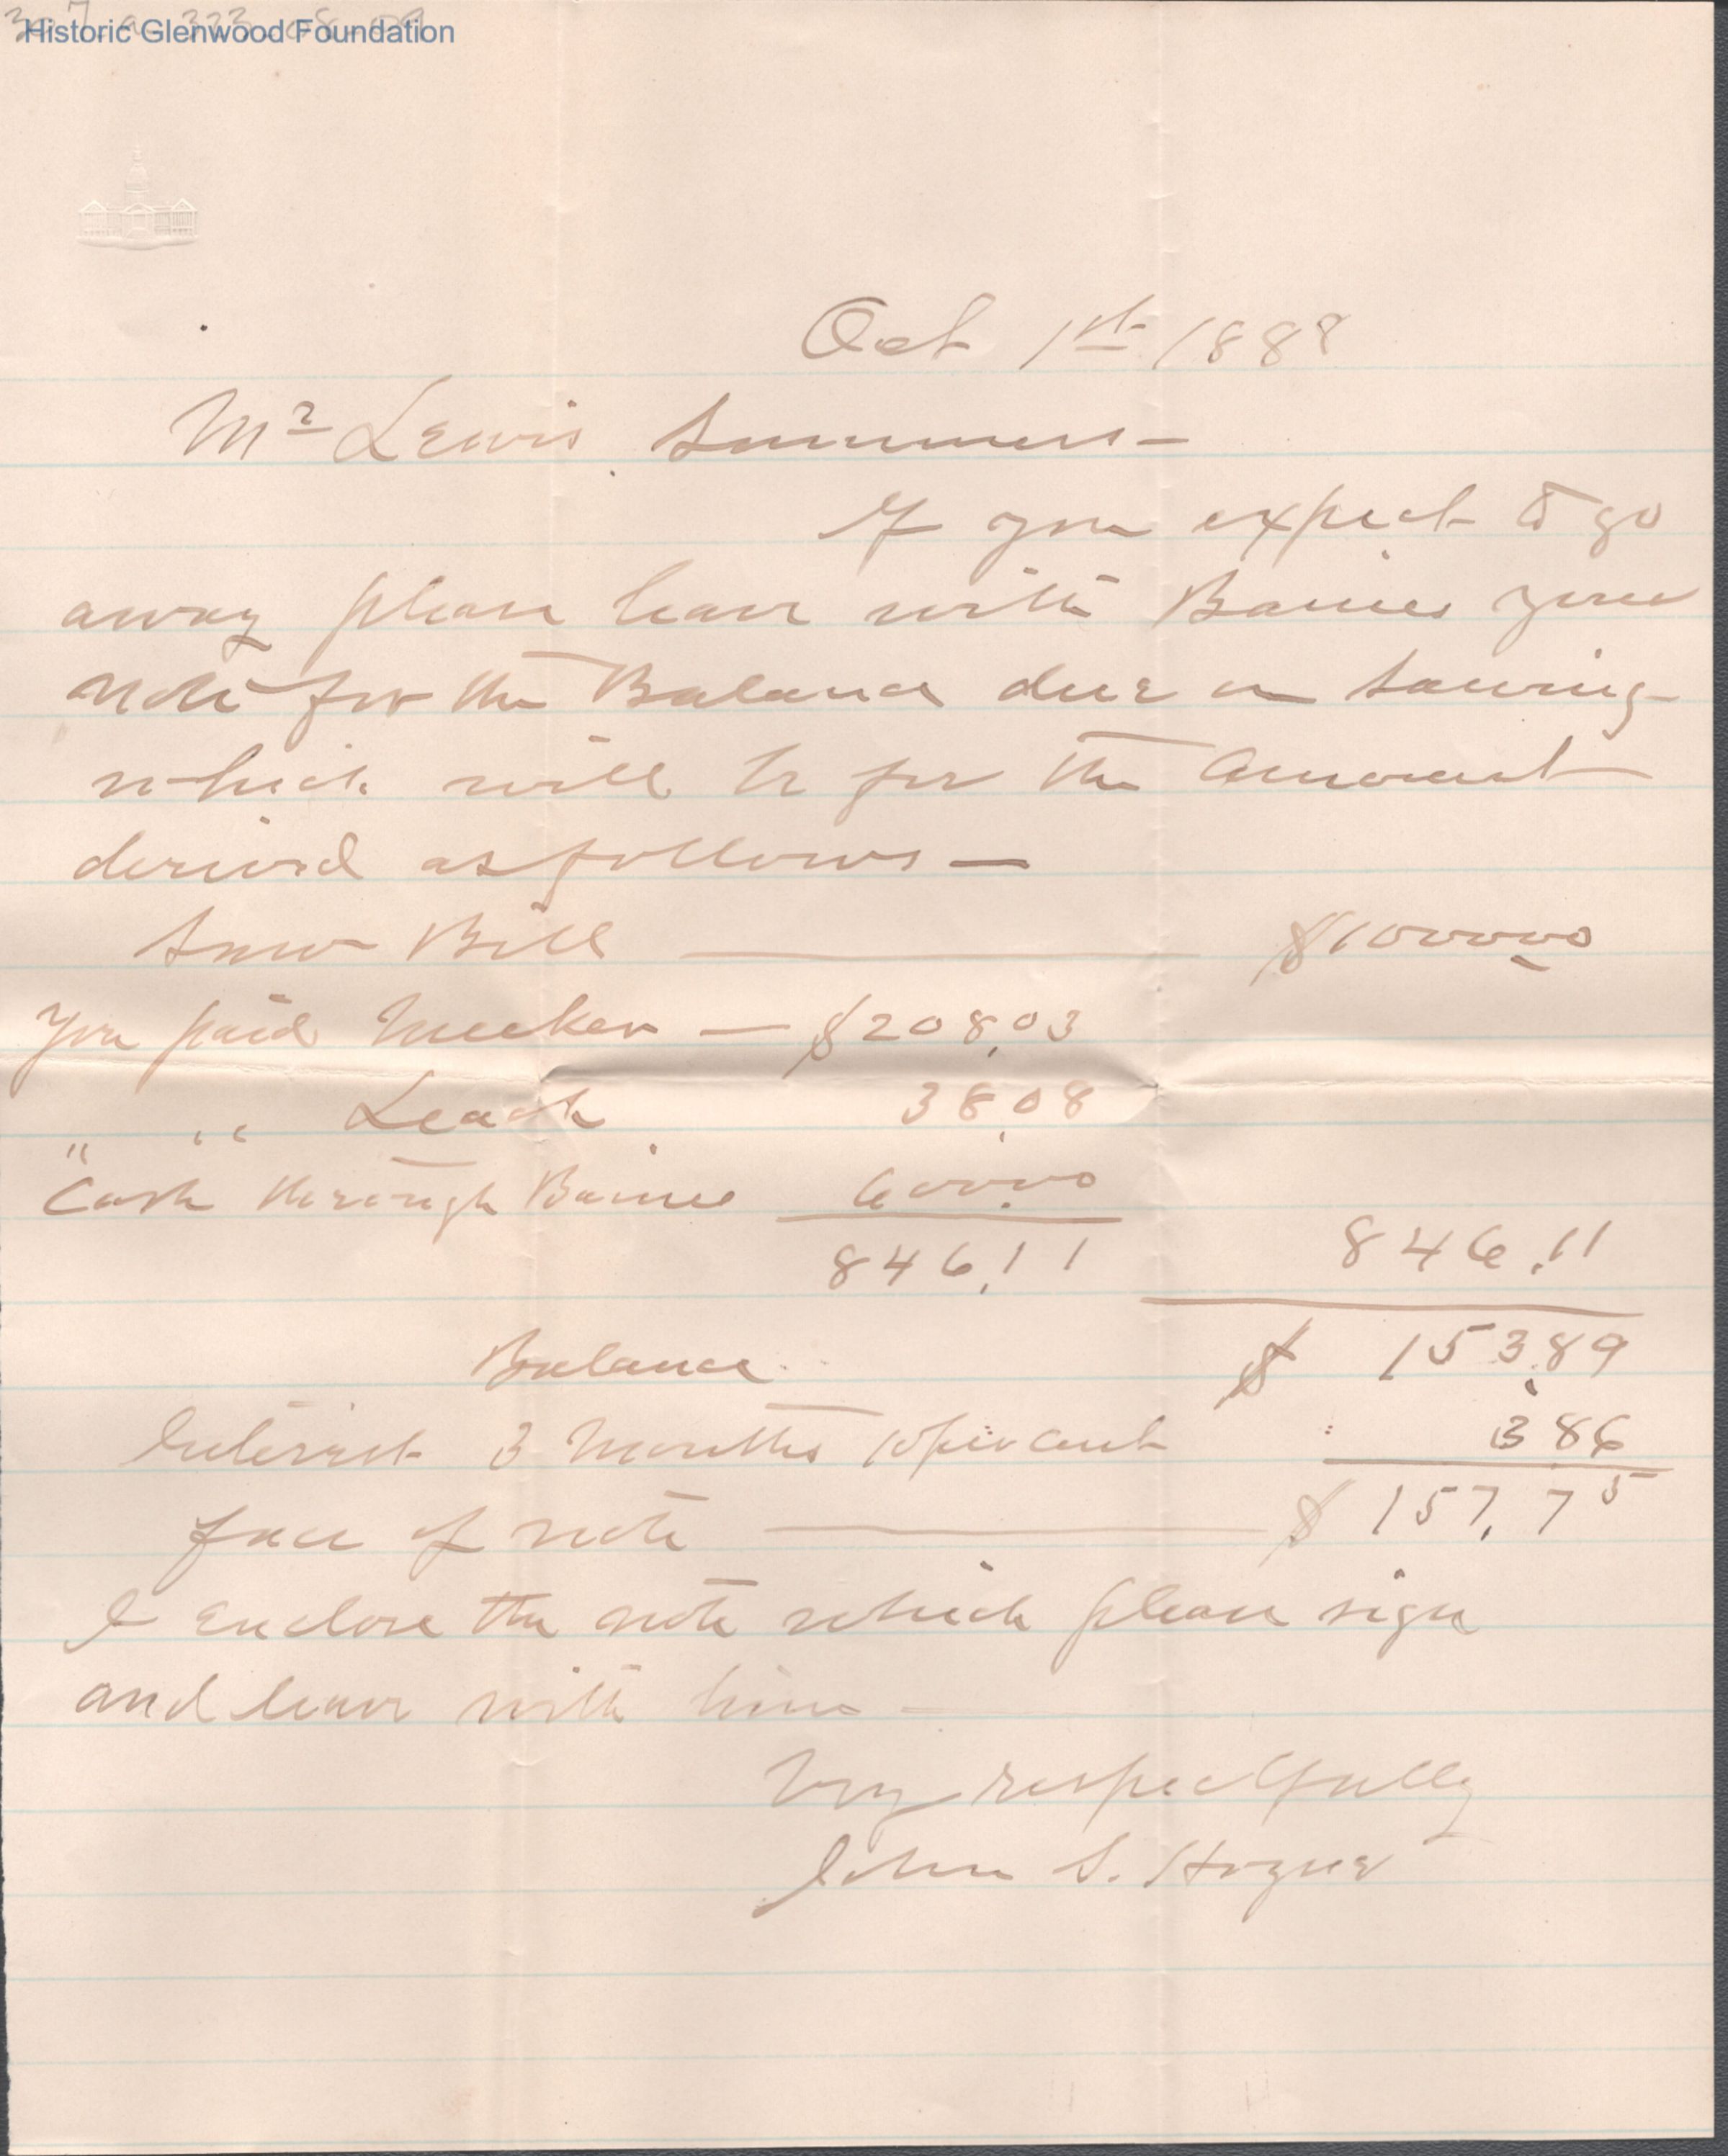 Historic Glenwood Foundation
Oct 1st 1888
Mr Lewis Summers—
If you expect to go
away please leave with Baines your
note for the Balance due on Sawing
which will be for the amount
derived as follows—
Saw Bill — $1000.00
You paid Meeker — $208.03
" " Leach 38.08
Cash through Baines 600.00
846.11 846.11
Balance $ 153.89
Interest 3 Months 10 per cent 3 86
face of note — $ 157.75
I enclose the note which please sign
and leave with him—
Very respectfully
John S.